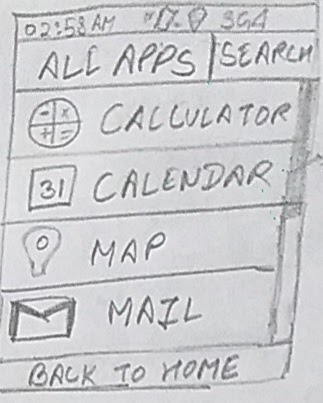 02:58 AM 3G4
ALL APPS SEARCH
CALCULATOR
31 CALENDAR
MAP
MAIL
BACK TO HOME